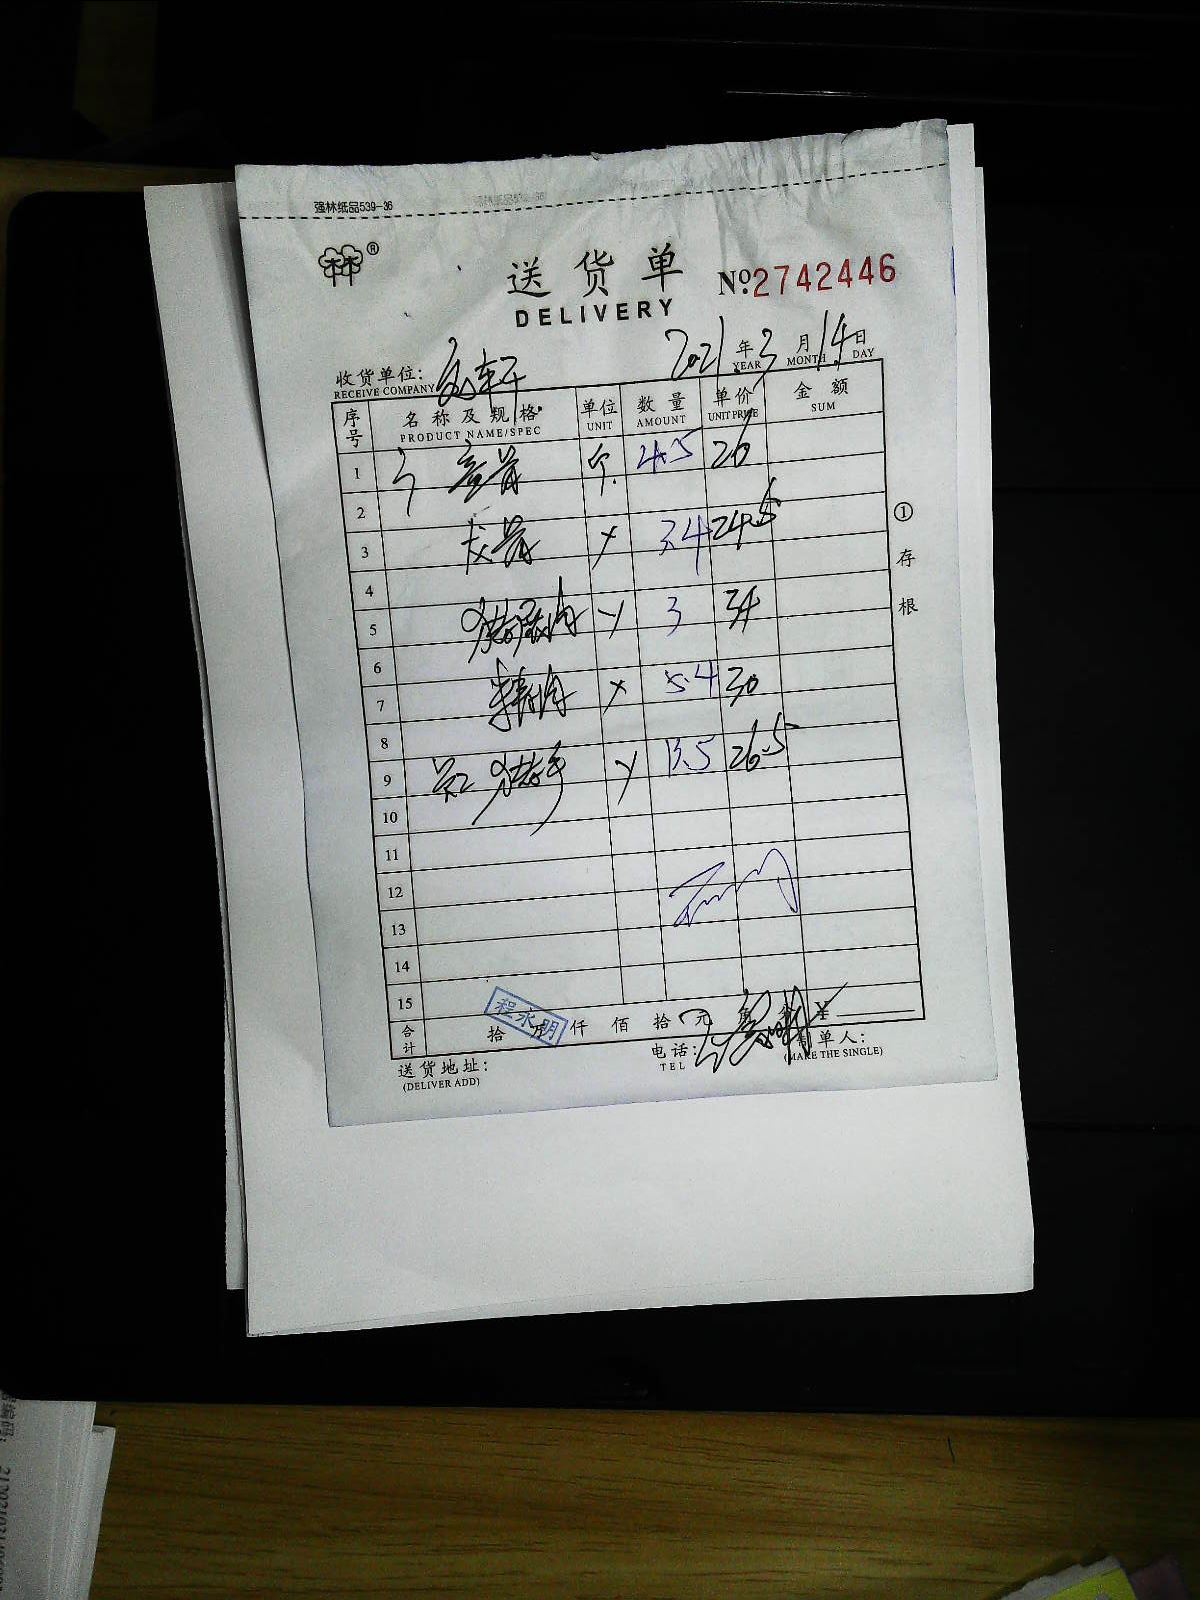 强林纸品539-36
林林®
送货单 №:2742446
DELIVERY
2021年3月14日
YEAR MONTH DAY
收货单位:轩
RECEIVE COMPANY
序号 名称及规格 单位 数量 单价 金额
PRODUCT NAME/SPEC UNIT AMOUNT UNIT PRICE SUM
1 骨 个 4.5 26
2
3 龙骨 3.4 24.5
4
5 猪腿肉 3 34
6
7 精肉 5.4 30
8
9 猪手 13.5 26.5
10
11
12
13
14
15
合计 拾万仟佰拾元角分¥
程永明
①存根
送货地址:
(DELIVER ADD)
电话:
TEL
制单人:
(MAKE THE SINGLE)